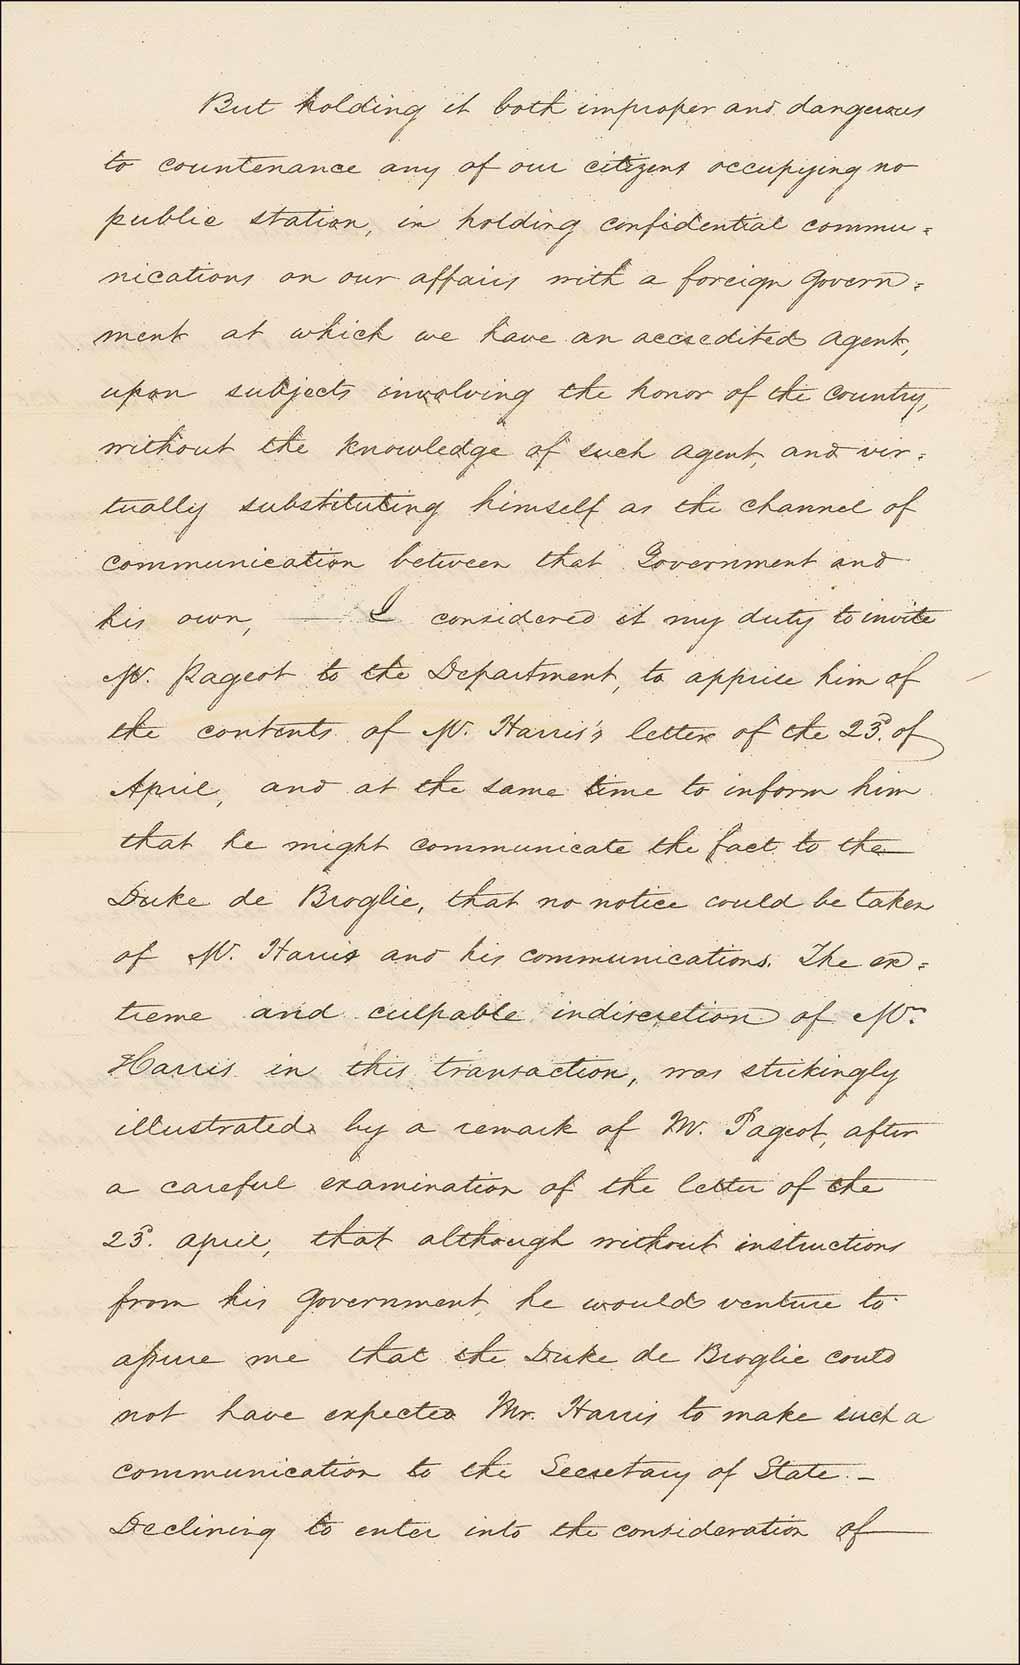 But holding it both improper and dangerous
to countenance any of our citizens occupying no
public station, in holding confidential commu=
nications on our affairs with a foreign Govern=
ment at which we have an accredited agent,
upon subjects involving the honor of the country,
without the knowledge of such agent, and vir=
tually substituting himself as the channel of
communication between that Government and
his own, — I considered it my duty to invite
Mr. Pageot to the Department, to apprise him of
the contents of Mr. Harris's letter of the 23d. of
April, and at the same time to inform him
that he might communicate the fact to the
Duke de Broglie, that no notice could be taken
of Mr. Harris and his communications. The ex=
treme and culpable indiscretion of Mr.
Harris in this transaction, was strikingly
illustrated by a remark of Mr. Pageot, after
a careful examination of the letter of the
23d. april, that although without instructions
from his Government, he would venture to
assure me that the Duke de Broglie could
not have expected Mr. Harris to make such a
communication to the Secretary of State. —
Declining to enter into the consideration of